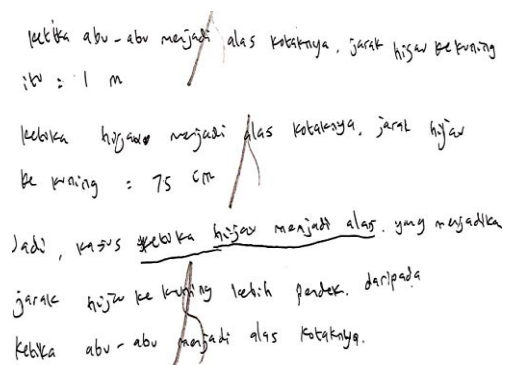 ketika abu-abu menjadi alas kotaknya, jarak hijau ke kuning
itu = 1 m
ketika hijau menjadi alas kotaknya, jarak hijau
ke kuning = 75 cm
Jadi, kasus ketika hijau menjadi alas, yang menjadika
jarak hijau ke kuning lebih pendek daripada
ketika abu-abu menjadi alas kotaknya.